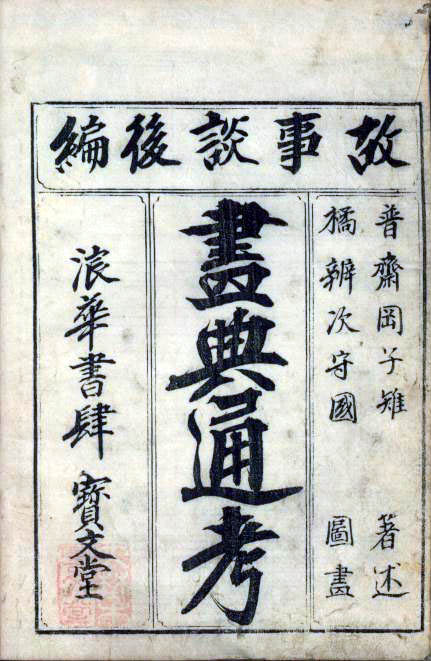 故事談後編
普齋岡子雉　著述
橘辨次守國　圖畫
畫典通考
浪華書肆　寶文堂